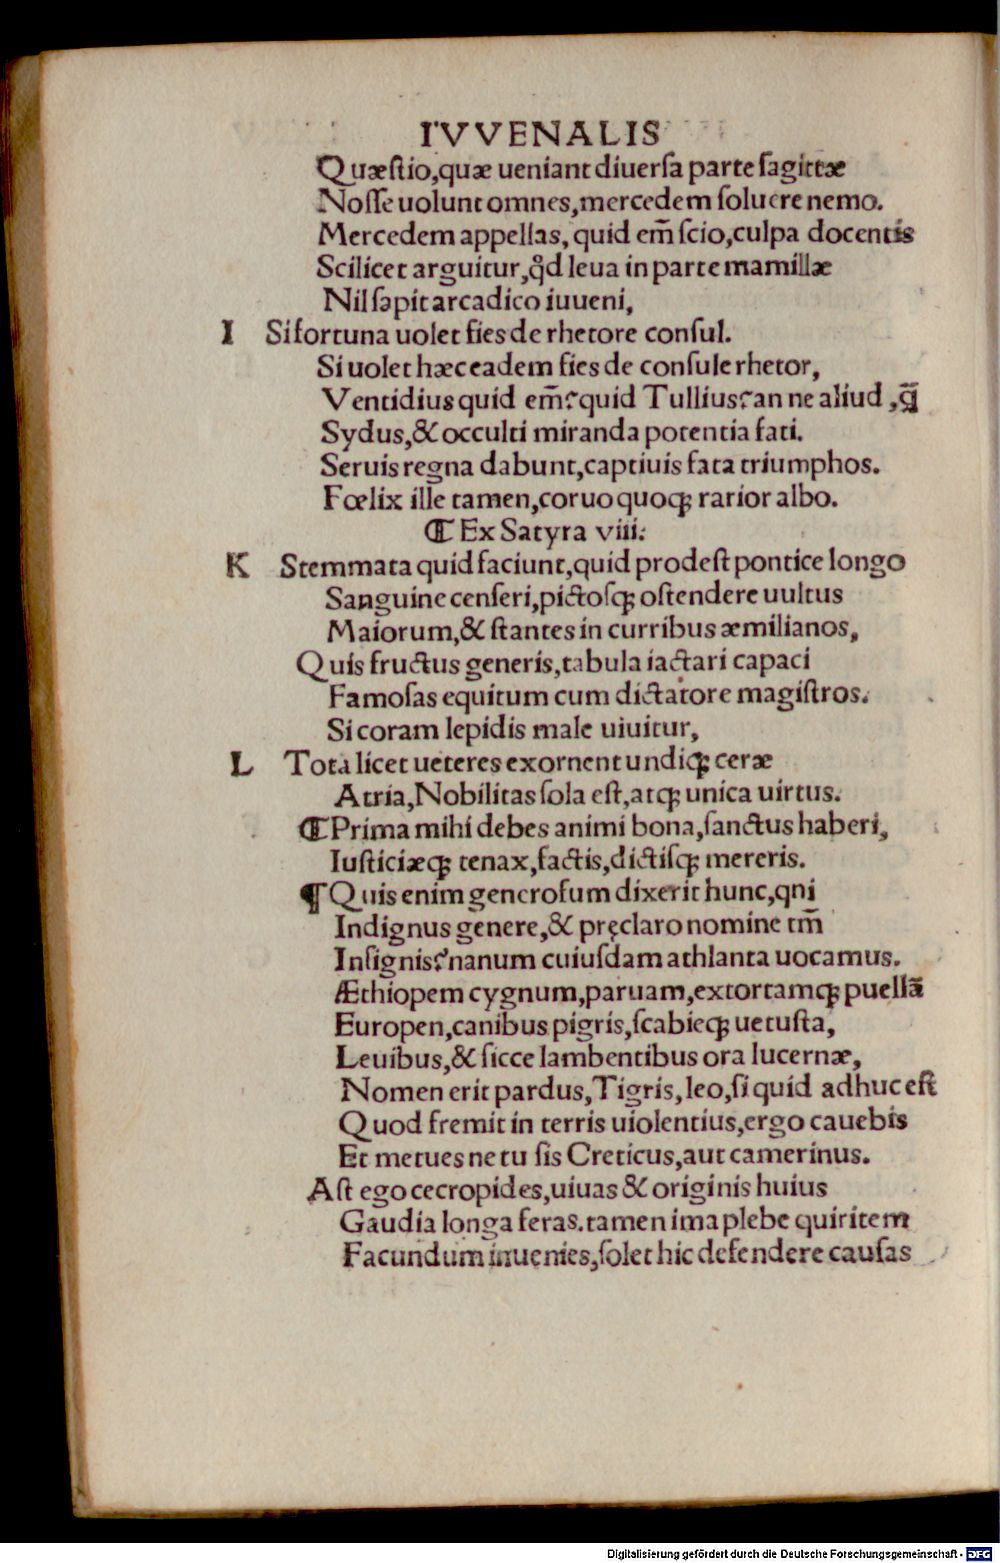 IVVENALIS
Quæſtio,quæ ueniant diuerſa parte ſagittæ
Noſſe uolunt omnes,mercedem ſoluere nemo.
Mercedem appellas, quid em̃ ſcio,culpa docentis
Scilicet arguitur,qd̛ leua in parte mamillæ
Nil ſapit arcadico iuueni,
I Si fortuna uolet fies de rhetore conſul.
Si uolet hæc eadem fies de conſule rhetor,
Ventidius quid em̃?quid Tullius?an ne aliud ,q̃
Sydus,& occulti miranda potentia fati.
Seruis regna dabunt,captiuis fata triumphos.
Fœlix ille tamen,coruo quoqꝫ rarior albo.
⁋ Ex Satyra viii.
K Stemmata quid faciunt,quid prodeſt pontice longo
Sanguine cenſeri,pictoſqꝫ oſtendere uultus
Maiorum,& ſtantes in curribus æmilianos,
Quis fructus generis,tabula iactari capaci
Famoſas equitum cum dictatore magiſtros.
Si coram lepidis male uiuitur,
L Tota licet ueteres exornent undiqꝫ ceræ
Atria,Nobilitas ſola eſt,atqꝫ unica uirtus.
⁋Prima mihi debes animi bona,ſanctus haberi,
Iuſticiæqꝫ tenax,factis,dictiſqꝫ mereris.
¶Quis enim generoſum dixerit hunc,qni
Indignus genere,& pręclaro nomine tm̃
Inſignis?nanum cuiuſdam athlanta uocamus.
Æthiopem cygnum,paruam,extortamqꝫ puellã
Europen,canibus pigris,ſcabieqꝫ uetuſta,
Leuibus,& ſicce lambentibus ora lucernæ,
Nomen erit pardus,Tigris,leo,ſi quid adhuc eſt
Quod fremit in terris uiolentius,ergo cauebis
Et metues ne tu ſis Creticus,aut camerinus.
Aſt ego cecropides,uiuas & originis huius
Gaudia longa feras.tamen ima plebe quiritem
Facundum inuenies,ſolet hic defendere cauſas
Digitalisierung gefördert durch die Deutsche Forschungsgemeinschaft - DFG